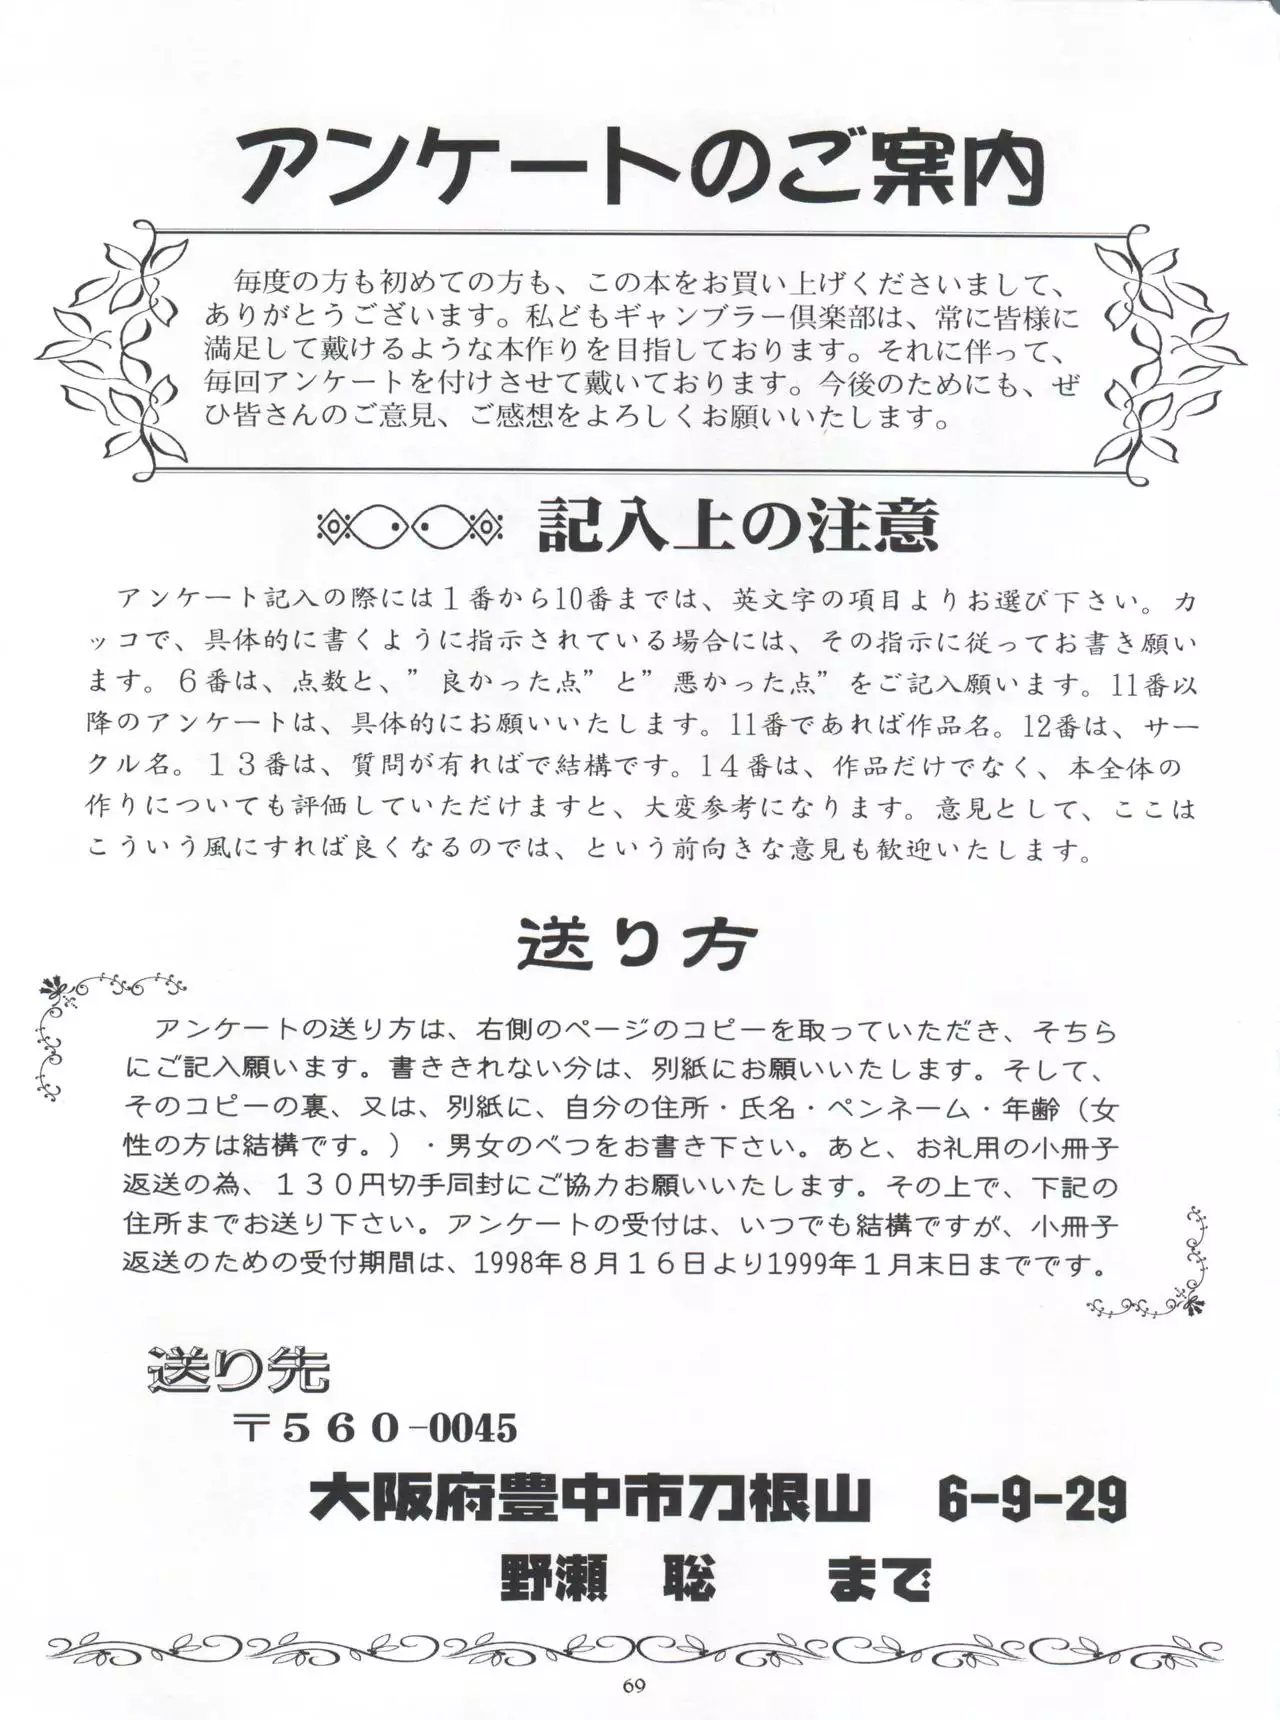 アンケートのご案内
　毎度の方も初めての方も、この本をお買い上げくださいまして、
ありがとうございます。私どもギャンブラー倶楽部は、常に皆様に
満足して戴けるような本作りを目指しております。それに伴って、
毎回アンケートを付けさせて戴いております。今後のためにも、ぜ
ひ皆さんのご意見、ご感想をよろしくお願いいたします。
記入上の注意
　アンケート記入の際には１番から10番までは、英文字の項目よりお選び下さい。カ
ッコで、具体的に書くように指示されている場合には、その指示に従ってお書き願い
ます。６番は、点数と、”良かった点”と”悪かった点”をご記入願います。11番以
降のアンケートは、具体的にお願いいたします。11番であれば作品名。12番は、サー
クル名。１３番は、質問が有ればで結構です。14番は、作品だけでなく、本全体の
作りについても評価していただけますと、大変参考になります。意見として、ここは
こういう風にすれば良くなるのでは、という前向きな意見も歓迎いたします。
送り方
　アンケートの送り方は、右側のページのコピーを取っていただき、そちら
にご記入願います。書ききれない分は、別紙にお願いいたします。そして、
そのコピーの裏、又は、別紙に、自分の住所・氏名・ペンネーム・年齢（女
性の方は結構です。）・男女のべつをお書き下さい。あと、お礼用の小冊子
返送の為、１３０円切手同封にご協力お願いいたします。その上で、下記の
住所までお送り下さい。アンケートの受付は、いつでも結構ですが、小冊子
返送のための受付期間は、1998年８月１６日より1999年１月末日までです。
送り先
〒５６０-0045
大阪府豊中市刀根山　6-9-29
野瀬　聡　　まで
69